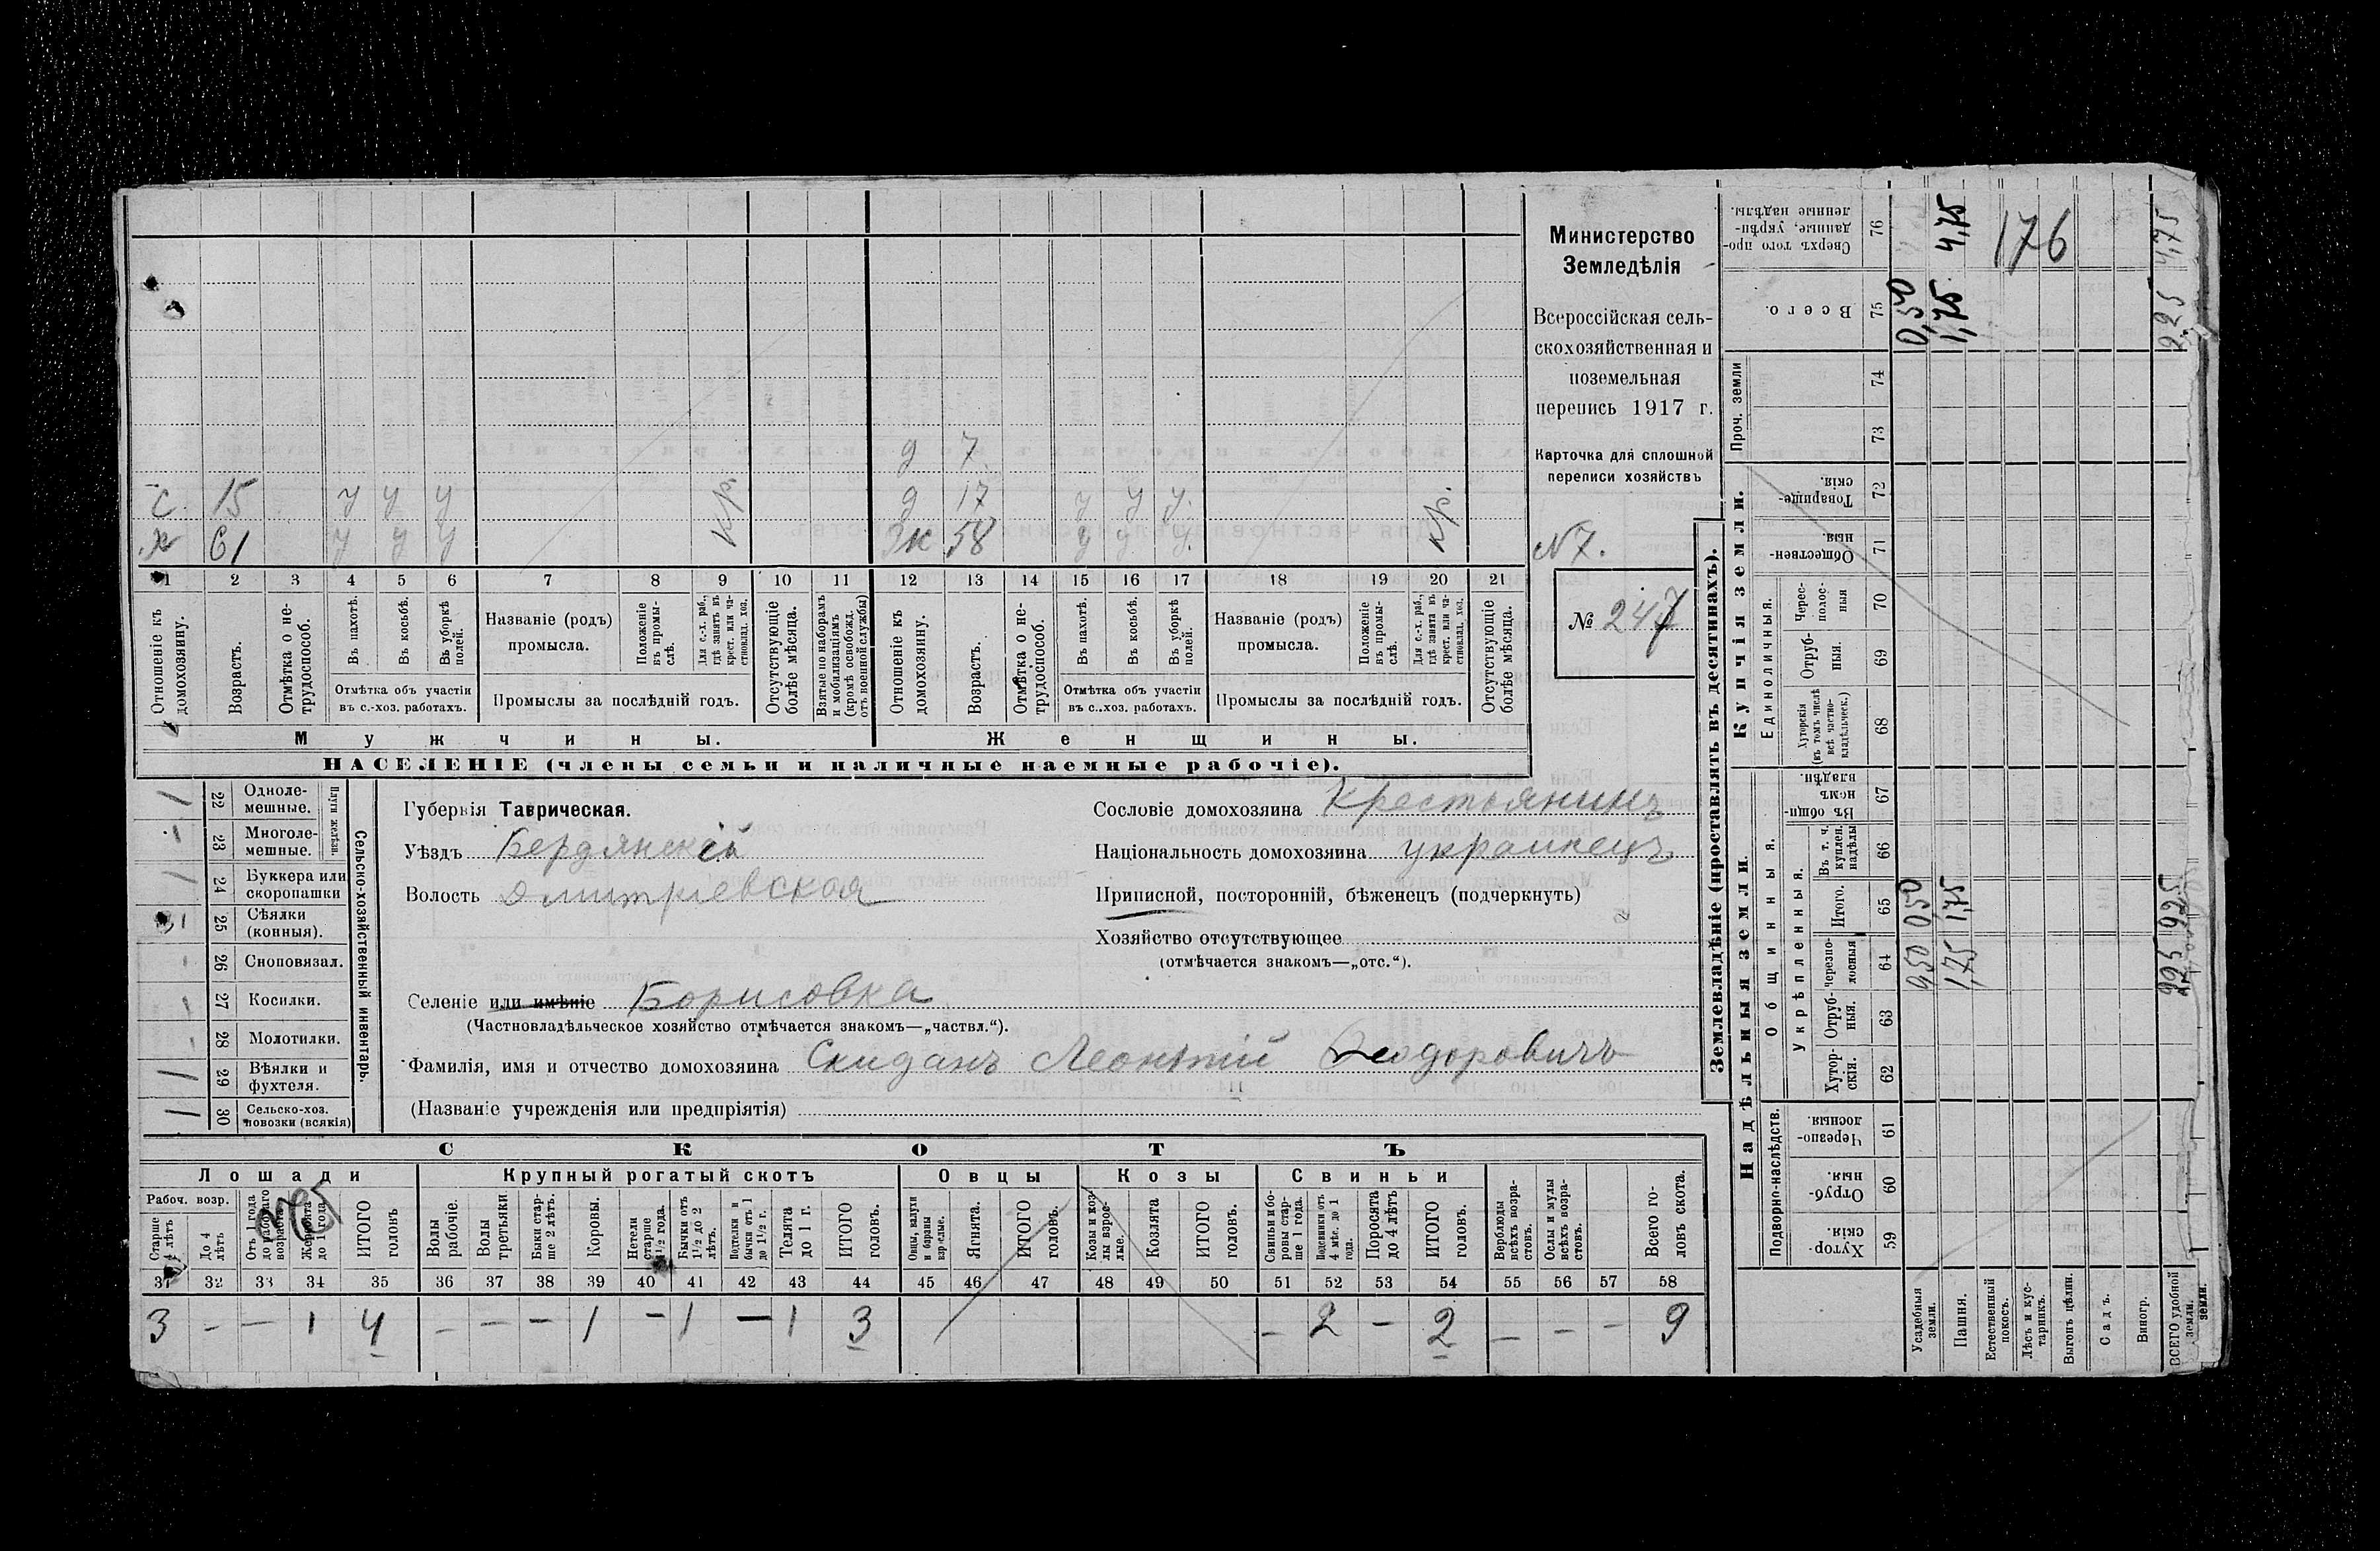 Министерство
Земледѣлія
Всероссійская сель-
скохозяйственная и
поземельная
перепись 1917 г.
Карточка для сплошной
переписи хозяйствъ
N 7.
№ 247
д 7
с. 15 у у у кр. д 17 у у у. кр.
х 61 у у у ж 58 у у у.
1 2 3 4 5 6 7 8 9 10 11 12 13 14 15 16 17 18 19 20 21
Отношеніе къ домохозяину.
Возрастъ.
Отмѣтка о не-трудоспособ.
Въ пахотѣ.
Въ косьбѣ.
Въ уборкѣ полей.
Отмѣтка объ участіи
въ с.-хоз. работахъ.
Названіе (родъ)
промысла.
Положеніе въ промы-слѣ.
Для с.-х. раб., гдѣ занятъ въ крест. или ча-стновлад. хоз.
Промыслы за послѣдній годъ.
Отсутствующіе болѣе мѣсяца.
Взятые по наборамъ и мобилизаціямъ (кромѣ освобожд. отъ военной службы)
Отношеніе къ домохозяину.
Возрастъ.
Отмѣтка о не-трудоспособ.
Въ пахотѣ.
Въ косьбѣ.
Въ уборкѣ полей.
Отмѣтка объ участіи
въ с..хоз. работахъ.
Названіе (родъ)
промысла.
Положеніе въ промы-слѣ.
Для с.-х. раб., гдѣ занята въ крест. или ча-стновлад. хоз.
Промыслы за послѣдній годъ.
Отсутствующіе болѣе мѣсяца.
Мужчины. Женщины.
НАСЕЛЕНІЕ (члены семьи и наличные наемные рабочіе).
Сельско-хозяйственный инвентарь.
Плуги желѣзн.
22 Одноле-мешные.
23 Многоле-мешные.
24 Буккера или скоропашки
25 Сѣялки (конныя).
26 Сноповязал.
27 Косилки.
28 Молотилки.
29 Вѣялки и фухтеля.
30 Сельско-хоз. повозки (всякія)
Губернія Таврическая.
Уѣздъ Бердянскій
Волость Дмитріевская
Сословіе домохозяина Крестьянинъ
Національность домохозяина украинецъ
Приписной, посторонній, бѣженецъ (подчеркнуть)
Хозяйство отсутствующее
(отмѣчается знакомъ—„отс.“).
Селеніе или имѣніе Борисовка
(Частновладѣльческое хозяйство отмѣчается знакомъ—„частвл.“).
Фамилія, имя и отчество домохозяина Скиданъ Леонтій Феодоровичъ
(Названіе учрежденія или предпріятія)
СКОТЪ
Лошади Крупный рогатый скотъ Овцы Козы Свиньи
Рабоч. возр.
Старше 4 лѣтъ
До 4 лѣтъ
Отъ 1 года до рабочаго возраста
Жеребята до 1 года
ИТОГО головъ
Волы рабочіе.
Волы третьяки
Быки стар-ше 2 лѣтъ.
Коровы.
Нетели старше 1½ года.
Бычки отъ 1½ до 2 лѣтъ.
Подтелки и бычки отъ 1 до 1½ г.
Телята до 1 г.
ИТОГО головъ.
Овцы, валухи и бараны взрослые.
Ягнята.
ИТОГО головъ.
Козы и коз-лы взрос-лые.
Козлята
ИТОГО головъ.
Свиньи и бо-ровы стар-ше 1 года.
Подсвинки отъ 4 мѣс. до 1 года.
Поросята до 4 лѣтъ
ИТОГО головъ.
Верблюды всѣхъ возра-стовъ.
Ослы и мулы всѣхъ возра-стовъ.
Всего го-ловъ скота.
31 32 33 34 35 36 37 38 39 40 41 42 43 44 45 46 47 48 49 50 51 52 53 54 55 56 57 58
3 - - 1 4 - - - 1 - 1 - 1 3 - 2 - 2 - - - 9
Землевладѣніе (проставлять въ десятинахъ).
Надѣльныя земли. Купчія земли.
Подворно-наслѣдств.
Общинныя.
Укрѣпленныя.
Единоличныя.
Проч. земли
Хутор-скія. 59
Отруб-ныя. 60
Черезпо-лосныя 61
Хутор-скія. 62
Отруб-ныя. 63
черезпо-лосныя 64
Итого. 65
Въ т. ч. куплен. надѣлы 66
Въ общи-номъ владѣн. 67
Хуторскія (въ томъ числѣ всѣ частно-владѣльческ.) 68
Отруб-ныя. 69
Черес-полос-ныя 70
Обществен-ныя. 71
Товарище-скія. 72
73
74
Всего. 75
Сверхъ того про-данные, укрѣп-ленные надѣлы. 76
Усадебныя земли. 0,50 0,50 0,50
Пашня. 1,75 1,75 1,75 4,75
Естественный покосъ.
Лѣсъ и кус-тарникъ.
Выгонъ цѣлин.
Садъ.
Виногр.
ВСЕГО удобной земли. 2,25 2,25 2,25 4,75
176